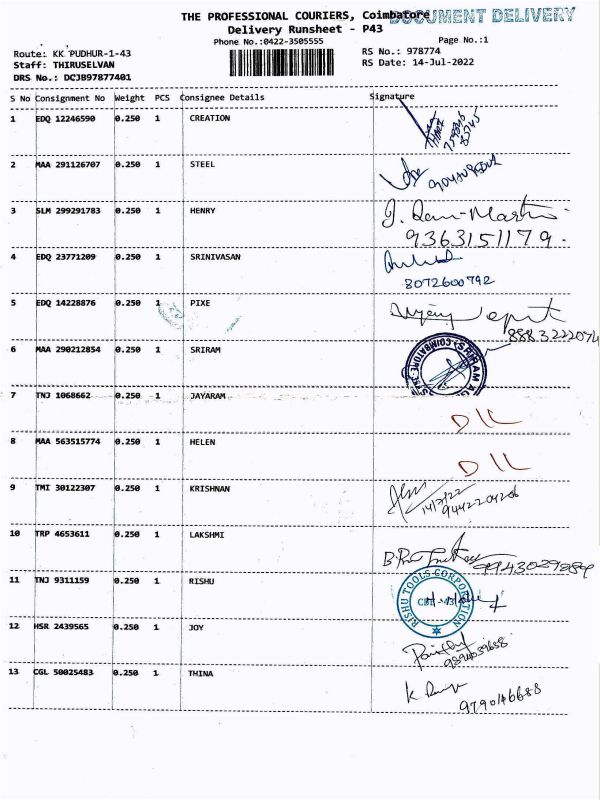 THE PROFESSIONAL COURIERS, Coimbatore
DOCUMENT DELIVERY
Delivery Runsheet - P43
Phone No.:0422-3505555
Page No.:1
Route: KK PUDHUR-1-43
RS No.: 978774
Staff: THIRUSELVAN
RS Date: 14-Jul-2022
DRS No.: DCJ897877401
S No Consignment No Weight PCS Consignee Details Signature
1 EDQ 12246590 0.250 1 CREATION
2 MAA 291126707 0.250 1 STEEL
3 SLM 299291783 0.250 1 HENRY
9363151179.
4 EDQ 23771209 0.250 1 SRINIVASAN
8072600792
5 EDQ 14228876 0.250 1 PIXE
8883222074
6 MAA 290212854 0.250 1 SRIRAM
COIMBATORE
SRIRAM
7 TNJ 1068662 0.250 1 JAYARAM
DLL
8 MAA 563515774 0.250 1 HELEN
DLL
9 TMI 30122307 0.250 1 KRISHNAN
14/7/22
9442204206
10 TRP 4653611 0.250 1 LAKSHMI
11 TNJ 9311159 0.250 1 RISHU
RISHU TOOLS CORPORATION
12 HSR 2439565 0.250 1 JOY
13 CGL 50025483 0.250 1 THINA
9790146688